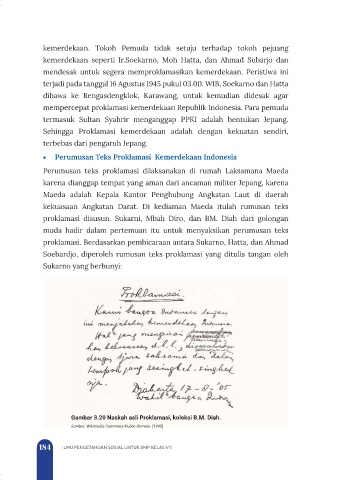 kemerdekaan. Tokoh Pemuda tidak setuju terhadap tokoh pejuang
kemerdekaan seperti Ir.Soekarno, Moh Hatta, dan Ahmad Subarjo dan
mendesak untuk segera memproklamasikan kemerdekaan. Peristiwa ini
terjadi pada tanggal 16 Agustus 1945 pukul 03.00. WIB, Soekarno dan Hatta
dibawa ke Rengasdengklok, Karawang, untuk kemudian didesak agar
mempercepat proklamasi kemerdekaan Republik Indonesia. Para pemuda
termasuk Sultan Syahrir menganggap PPKI adalah bentukan Jepang.
Sehingga Proklamasi kemerdekaan adalah dengan kekuatan sendiri,
terbebas dari pengaruh Jepang.
• Perumusan Teks Proklamasi Kemerdekaan Indonesia
Perumusan teks proklamasi dilaksanakan di rumah Laksamana Maeda
karena dianggap tempat yang aman dari ancaman militer Jepang, karena
Maeda adalah Kepala Kantor Penghubung Angkatan Laut di daerah
kekuasaan Angkatan Darat. Di kediaman Maeda itulah rumusan teks
proklamasi disusun. Sukarni, Mbah Diro, dan BM. Diah dari golongan
muda hadir dalam pertemuan itu untuk menyaksikan perumusan teks
proklamasi. Berdasarkan pembicaraan antara Sukarno, Hatta, dan Ahmad
Soebardjo, diperoleh rumusan teks proklamasi yang ditulis tangan oleh
Sukarno yang berbunyi:
Proklamasi.
Kami bangsa Indonesia dengan
ini menjatakan kemerdekaan Indonesia
Hal² jang mengenai
kekoeasaan d.l.l.,
dengan tjara saksama dan dalam
tempoh jang sesingkat-singkat
nja.
Djakarta, 17-8-'05
Wakil² bangsa Indon.
Gambar 3.20 Naskah asli Proklamasi, koleksi B.M. Diah.
Sumber: Wikimedia Commons/Public Domain (1945)
184 ILMU PENGETAHUAN SOSIAL UNTUK SMP KELAS VIII